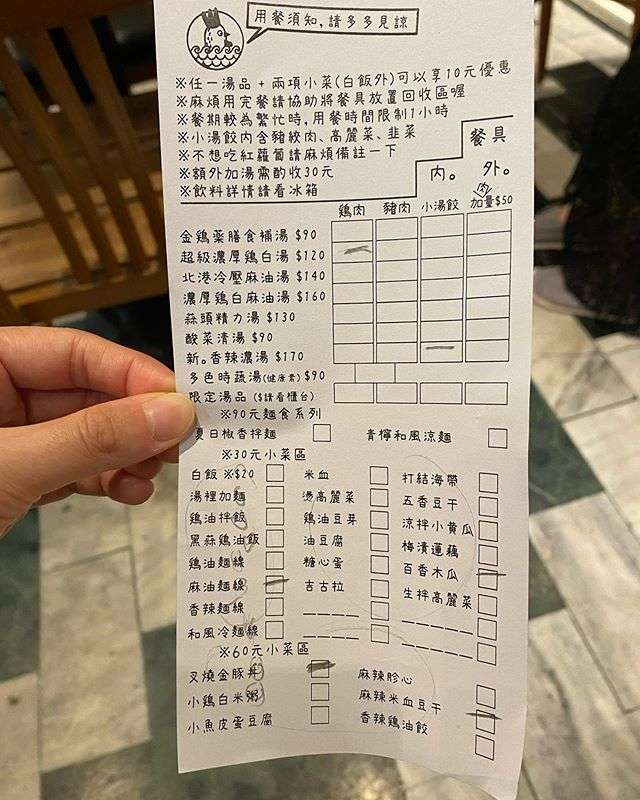 用餐須知,請多多見諒
※任一湯品 + 兩項小菜(白飯外)可以享10元優惠
※麻煩用完餐請協助將餐具放置回收區喔
※餐期較為繁忙時,用餐時間限制1小時
※小湯餃內含豬絞肉、高麗菜、韭菜
※不想吃紅蘿蔔請麻煩備註一下
※額外加湯需酌收30元
※飲料詳情請看冰箱
餐具
內。 外。
鶏肉 豬肉 小湯餃 加肉量$50
金鶏藥膳食補湯 $90
超級濃厚鶏白湯 $120
北港冷壓麻油湯 $140
濃厚鶏白麻油湯 $160
蒜頭精力湯 $130
酸菜清湯 $90
新。香辣濃湯 $170
多色時蔬湯(健康素) $90
限定湯品 ($請看櫃台)
※90元麵食系列
夏日椒香拌麵 青檸和風涼麵
※30元小菜區
白飯 ※$20 米血 打結海帶
湯裡加麵 燙高麗菜 五香豆干
鶏油拌飯 鶏油豆芽 涼拌小黃瓜
黑蒜鶏油飯 油豆腐 梅漬蓮藕
鶏油麵線 糖心蛋 百香木瓜
麻油麵線 吉古拉 生拌高麗菜
香辣麵線
和風冷麵線
※60元小菜區
叉燒金豚丼 麻辣胗心
小鶏白米粥 麻辣米血豆干
小魚皮蛋豆腐 香辣鶏油餃